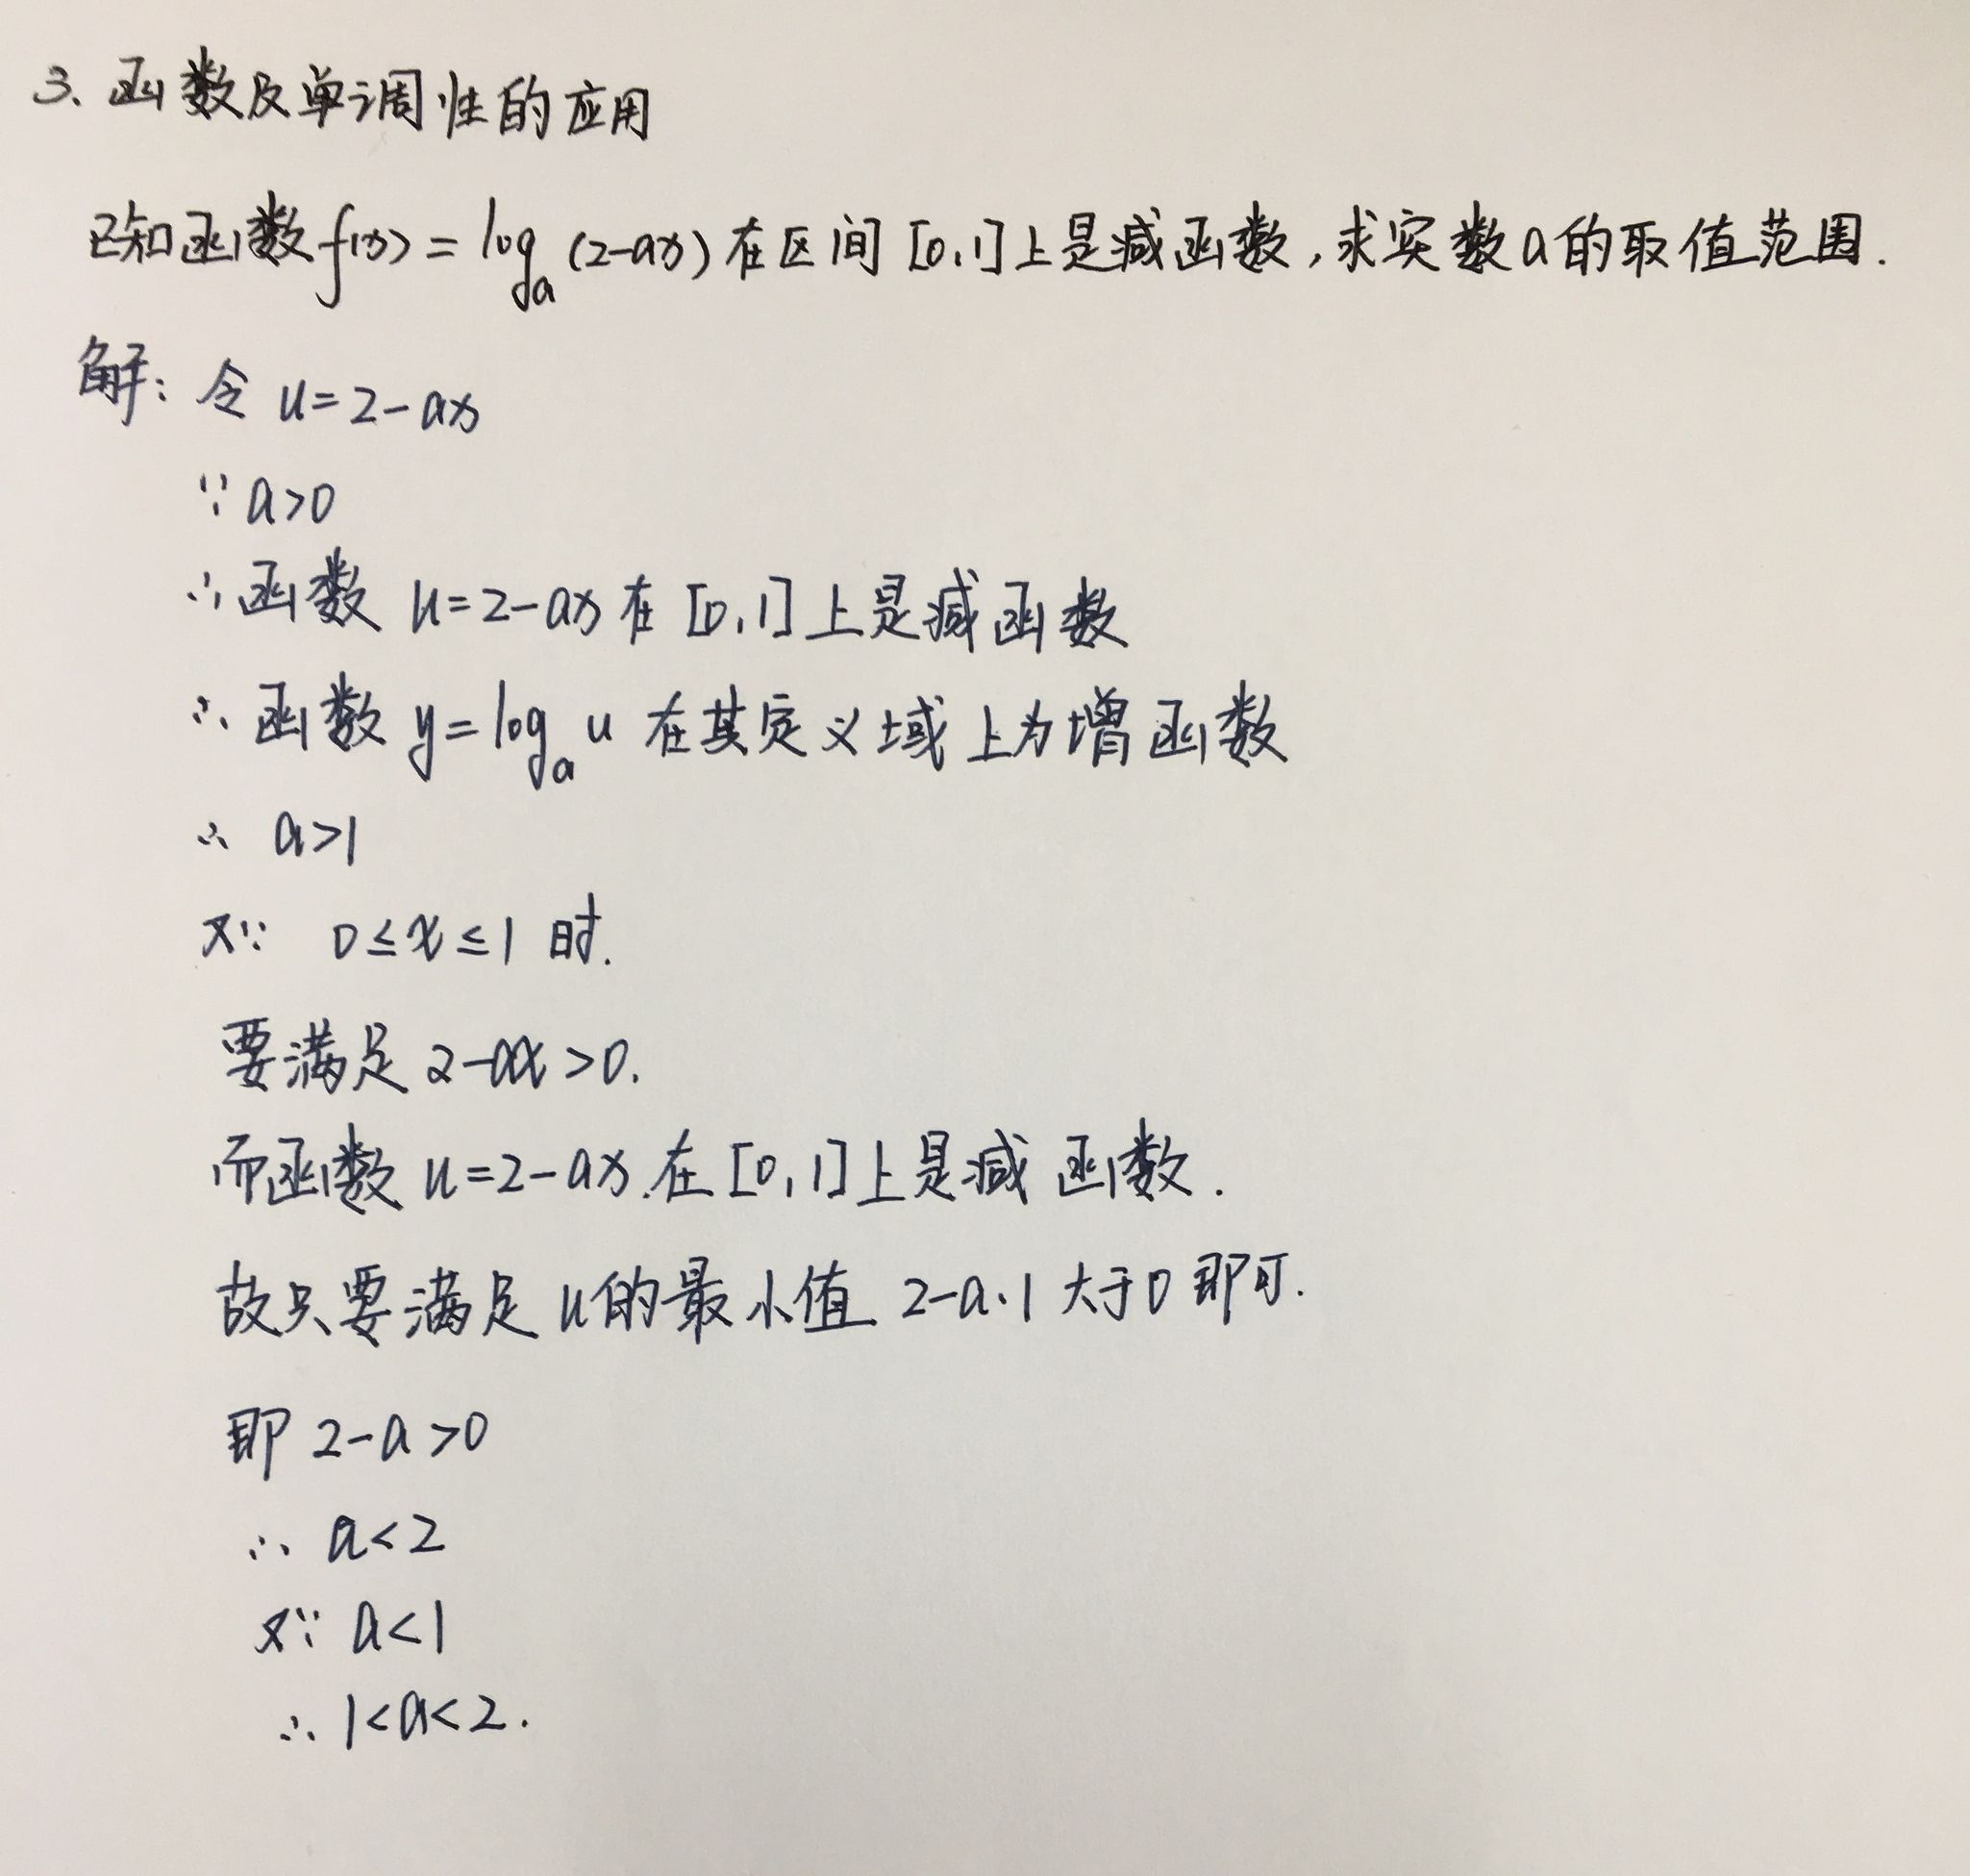 3、函数及单调性的应用
已知函数f(x)=logₐ(2-ax)在区间[0,1]上是减函数,求实数a的取值范围.
解: 令 u=2-ax
∵ a>0
∴函数 u=2-ax在[0,1]上是减函数
∴函数 y=logₐu 在其定义域上为增函数
∴ a>1
又∵ 0≤x≤1 时.
要满足 2-ax>0.
而函数 u=2-ax.在[0,1]上是减函数.
故只要满足 u的最小值 2-a·1 大于0 即可.
即 2-a>0
∴ a<2
又∵ a<1
∴ 1<a<2.